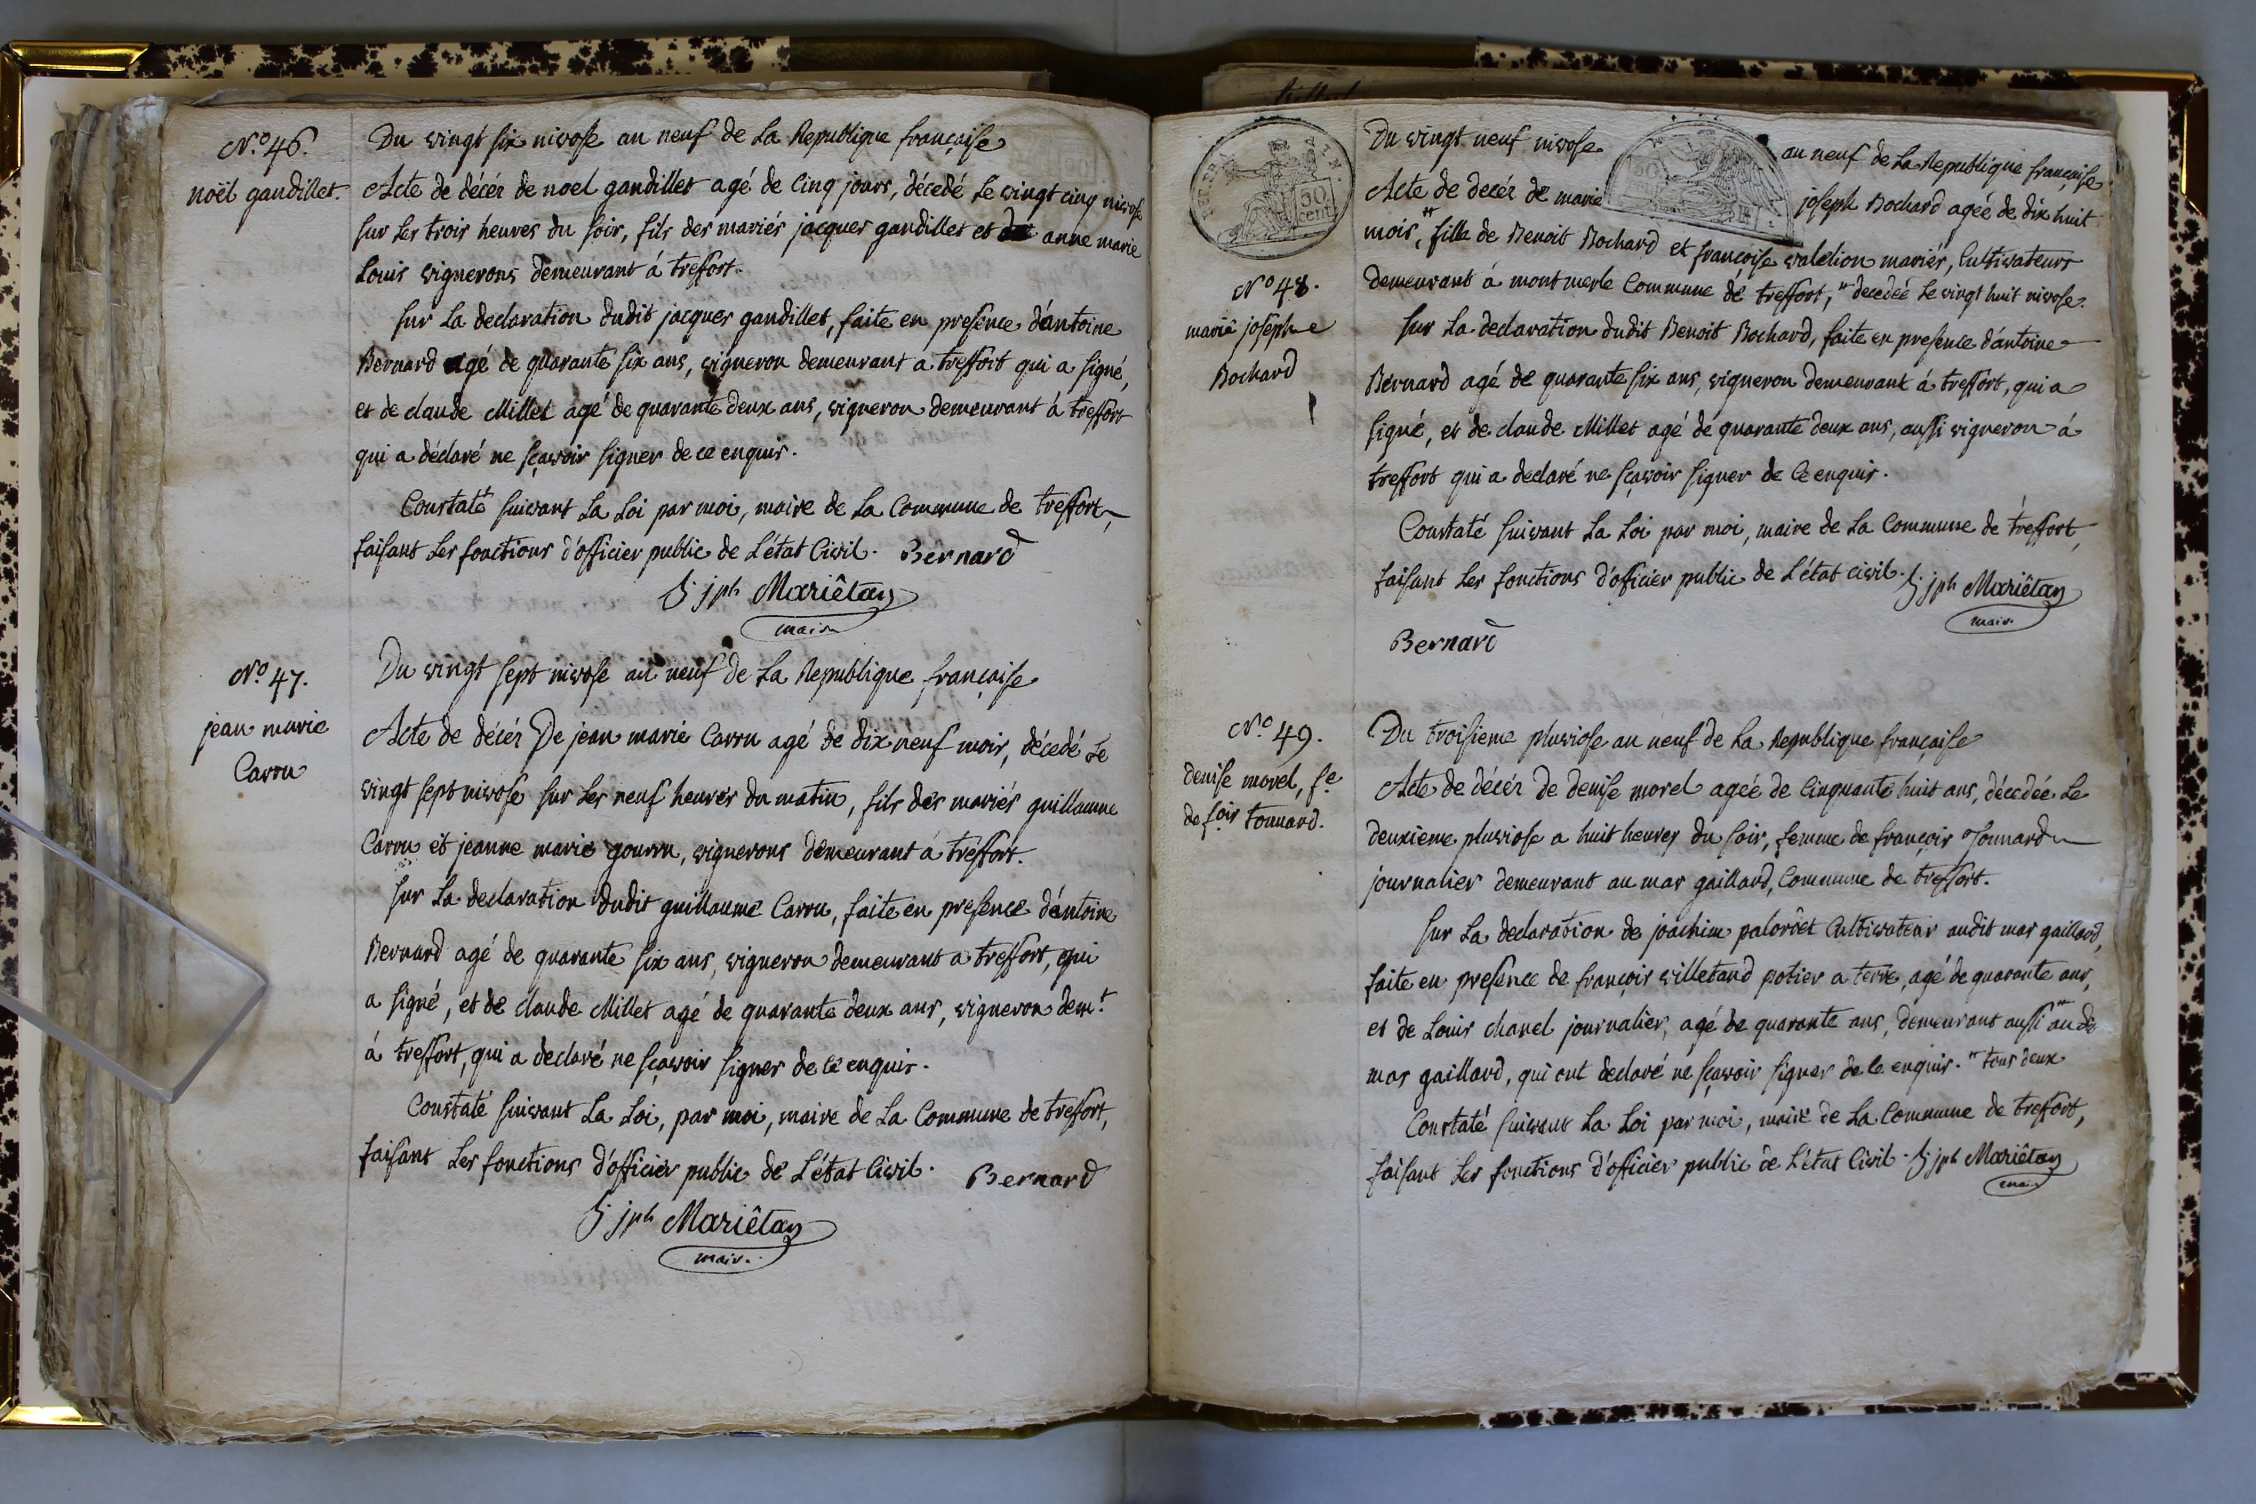 N.o 46.
noël gandillet.
Du vingt six nivose an neuf de La Republique française
Acte de décér de noel gandillet agé de Cinq jours, décedé Le vingt cinq nivose
sur Les trois heures du soir, fils des mariés jacques gandillet et anne marie
Louis vignerons demeurant á treffort.
sur La declaration dudit jacques gandillet, faite en presence d'antoine
Bernard agé de quarante six ans, vigneron demeurant a treffort qui a signé,
et de claude Millet agé de quarante deux ans, vigneron demeurant á treffort
qui a déclaré ne sçavoir signer de ce enquis.
Constaté suivant La Loi par moi, maire de La Commune de treffort,
faisant Les fonctions d'officier public de L'état Civil. Bernard
jph Mariêtan
maire
N.o 47.
jean marie
Carru
Du vingt sept nivose an neuf de La Republique française
Acte de décér De jean marie Carru agé de dix neuf mois, décedé Le
vingt sept nivose sur Les neuf heures du matin, fils des mariés guillaume
Carru et jeanne marie gourru, vignerons demeurant á treffort.
sur La declaration dudit guillaume Carru, faite en presence d'antoine
Bernard agé de quarante six ans, vigneron demeurant a treffort, qui
a signé, et de claude Millet agé de quarante deux ans, vigneron dem.t
á treffort, qui a declaré ne sçavoir signer de ce enquis.
Constaté suivant La Loi, par moi, maire de La Commune de treffort,
faisant Les fonctions d'officier public de L'état Civil. Bernard
jph Mariêtan
maire.
50
cent
N.o 48.
marie josephe
Bochard
Du vingt neuf nivose an neuf de La Republique française
Acte de decér de marie joseph Bochard agée de dix huit
mois, fille de Benoit Bochard et françoise valelion mariés, Cultivateurs
demeurant á mont merle Commune de treffort, decedeé Le vingt huit nivose.
sur La declaration dudit Benoit Bochard, faite en presence d'antoine
Bernard agé de quarante six ans, vigneron demeurant á treffort, qui a
signé, et de claude Millet agé de quarante deux ans, aussi vigneron á
treffort qui a declaré ne sçavoir signer de ce enquis.
Constaté suivant La Loi par moi, maire de La Commune de treffort,
faisant Les fonctions d'officier public de L'état civil. jph Mariêtan
maire.
Bernard
N.o 49.
denise morel, fe
de fois Tonnard.
Du troisieme pluviose an neuf de La Republique française
Acte de décér de denise morel agée de Cinquante huit ans, décedée Le
deuxieme pluviose a huit heures du soir, femme de françois Tonnard
journalier demeurant au mas gaillard, Commune de treffort.
sur La declaration de joachim palordet Cultivateur audit mas gaillard,
faite en presence de françois villetand potier a terre, agé de quarante ans,
et de Louis chanel journalier, agé de quarante ans, demeurant aussi au d.
mas gaillard, qui ont declaré ne sçavoir signer de ce enquis. tous deux
Constaté suivant La Loi par moi, maire de La Commune de treffort,
faisant Les fonctions d'officier public de L'état Civil. jph Mariêtan
maire